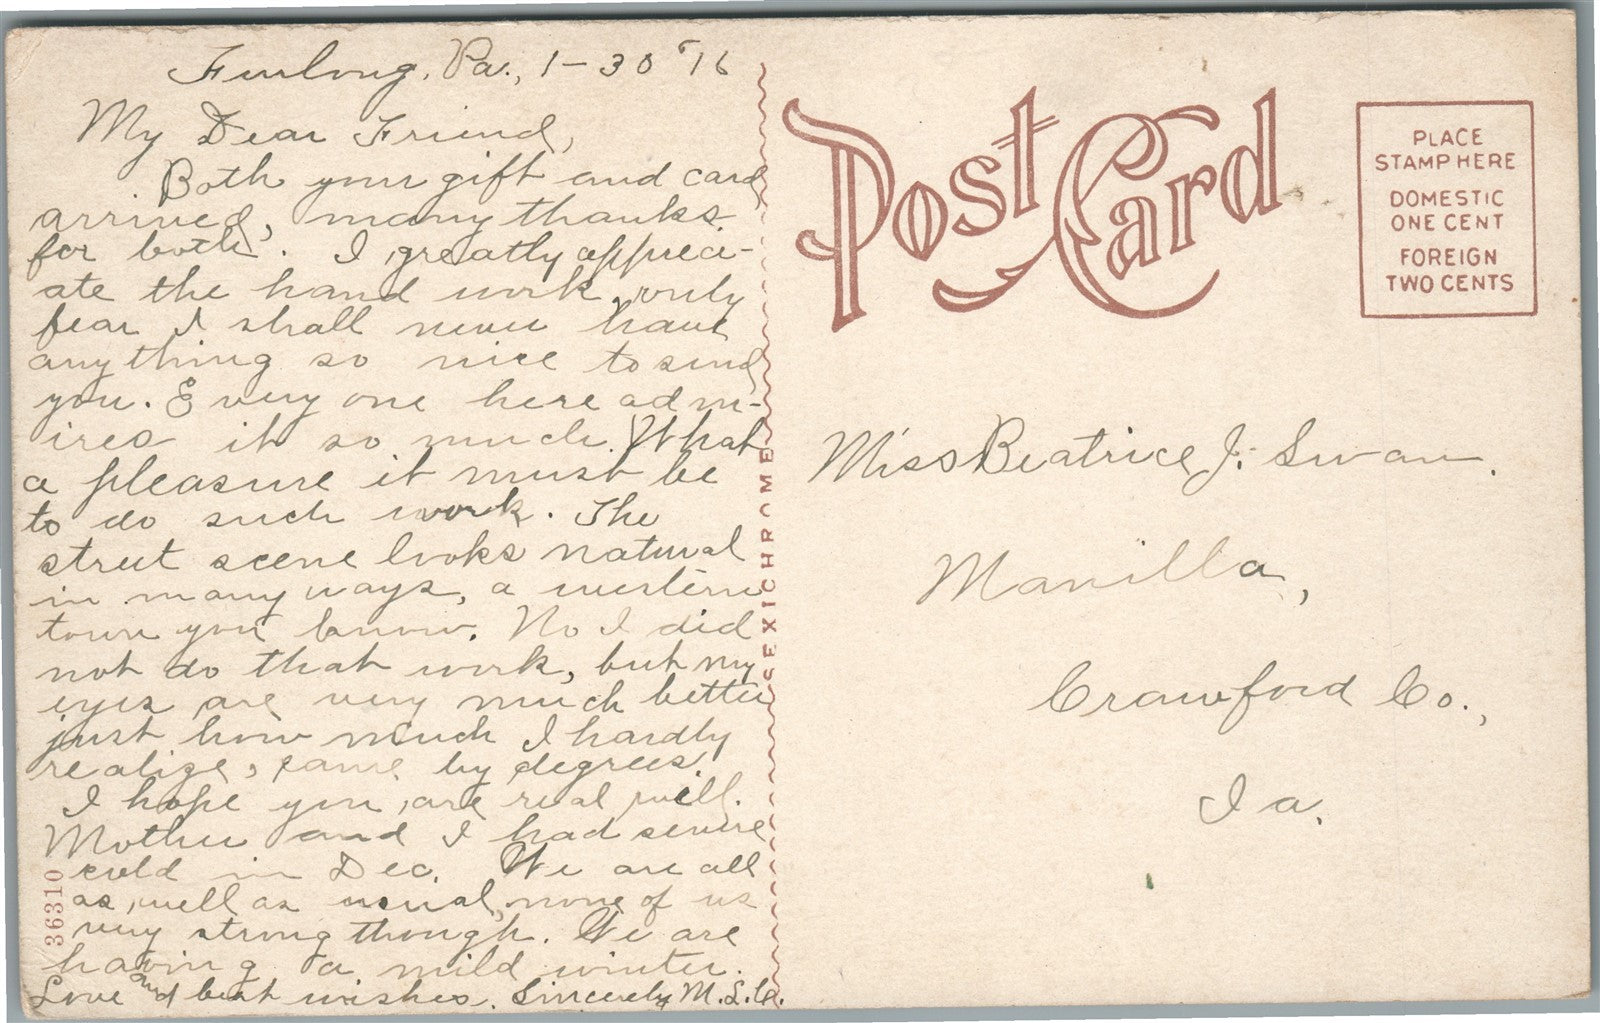 Furlong, Pa., 1-30 '16
My Dear Friend,
Both your gift and card
arrived, many thanks
for both. I greatly appreci-
ate the hand work, only
fear I shall never have
anything so nice to send
you. Every one here adm-
ires it so much. What
a pleasure it must be
to do such work. The
street scene looks natural
in many ways, a western
town you know. No I did
not do that work, but my
eyes are very much better
just how much I hardly
realize, came by degrees.
I hope you are real well.
Mother and I had severe
cold in Dec. We are all
as well as usual, none of us
very strong though. We are
having a mild winter.
Love and best wishes. Sincerely M.S.C.
36310
SEXICHROME
Post Card
PLACE
STAMP HERE
DOMESTIC
ONE CENT
FOREIGN
TWO CENTS
Miss Beatrice J. Swan.
Manilla,
Crawford Co.,
Ia.